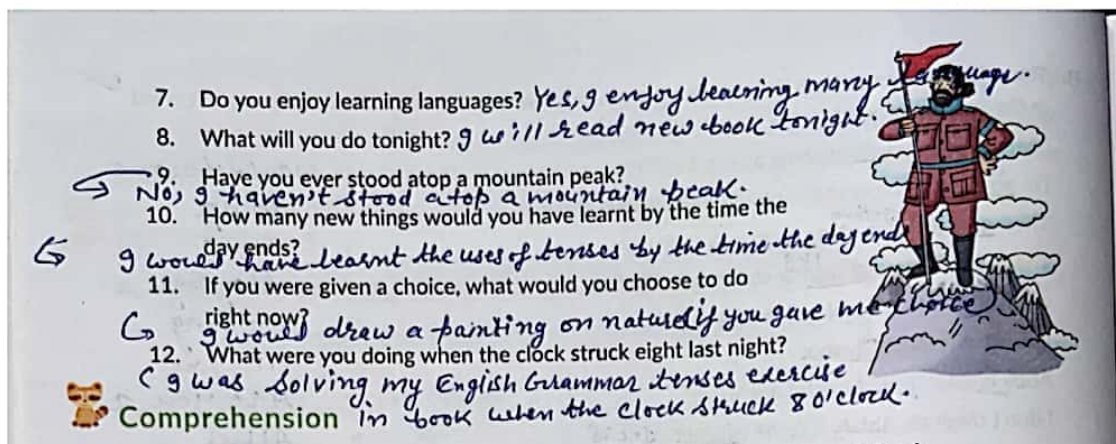 7. Do you enjoy learning languages? Yes, I enjoy learning many language.
8. What will you do tonight? I will read new book tonight.
9. Have you ever stood atop a mountain peak?
No, I haven't stood atop a mountain peak.
10. How many new things would you have learnt by the time the
day ends?
I would have learnt the uses of tenses by the time the day end
11. If you were given a choice, what would you choose to do
right now?
I would draw a painting on nature if you gave me choice
12. What were you doing when the clock struck eight last night?
I was solving my English Grammar tenses exercise
Comprehension in book when the clock struck 8 O'clock.